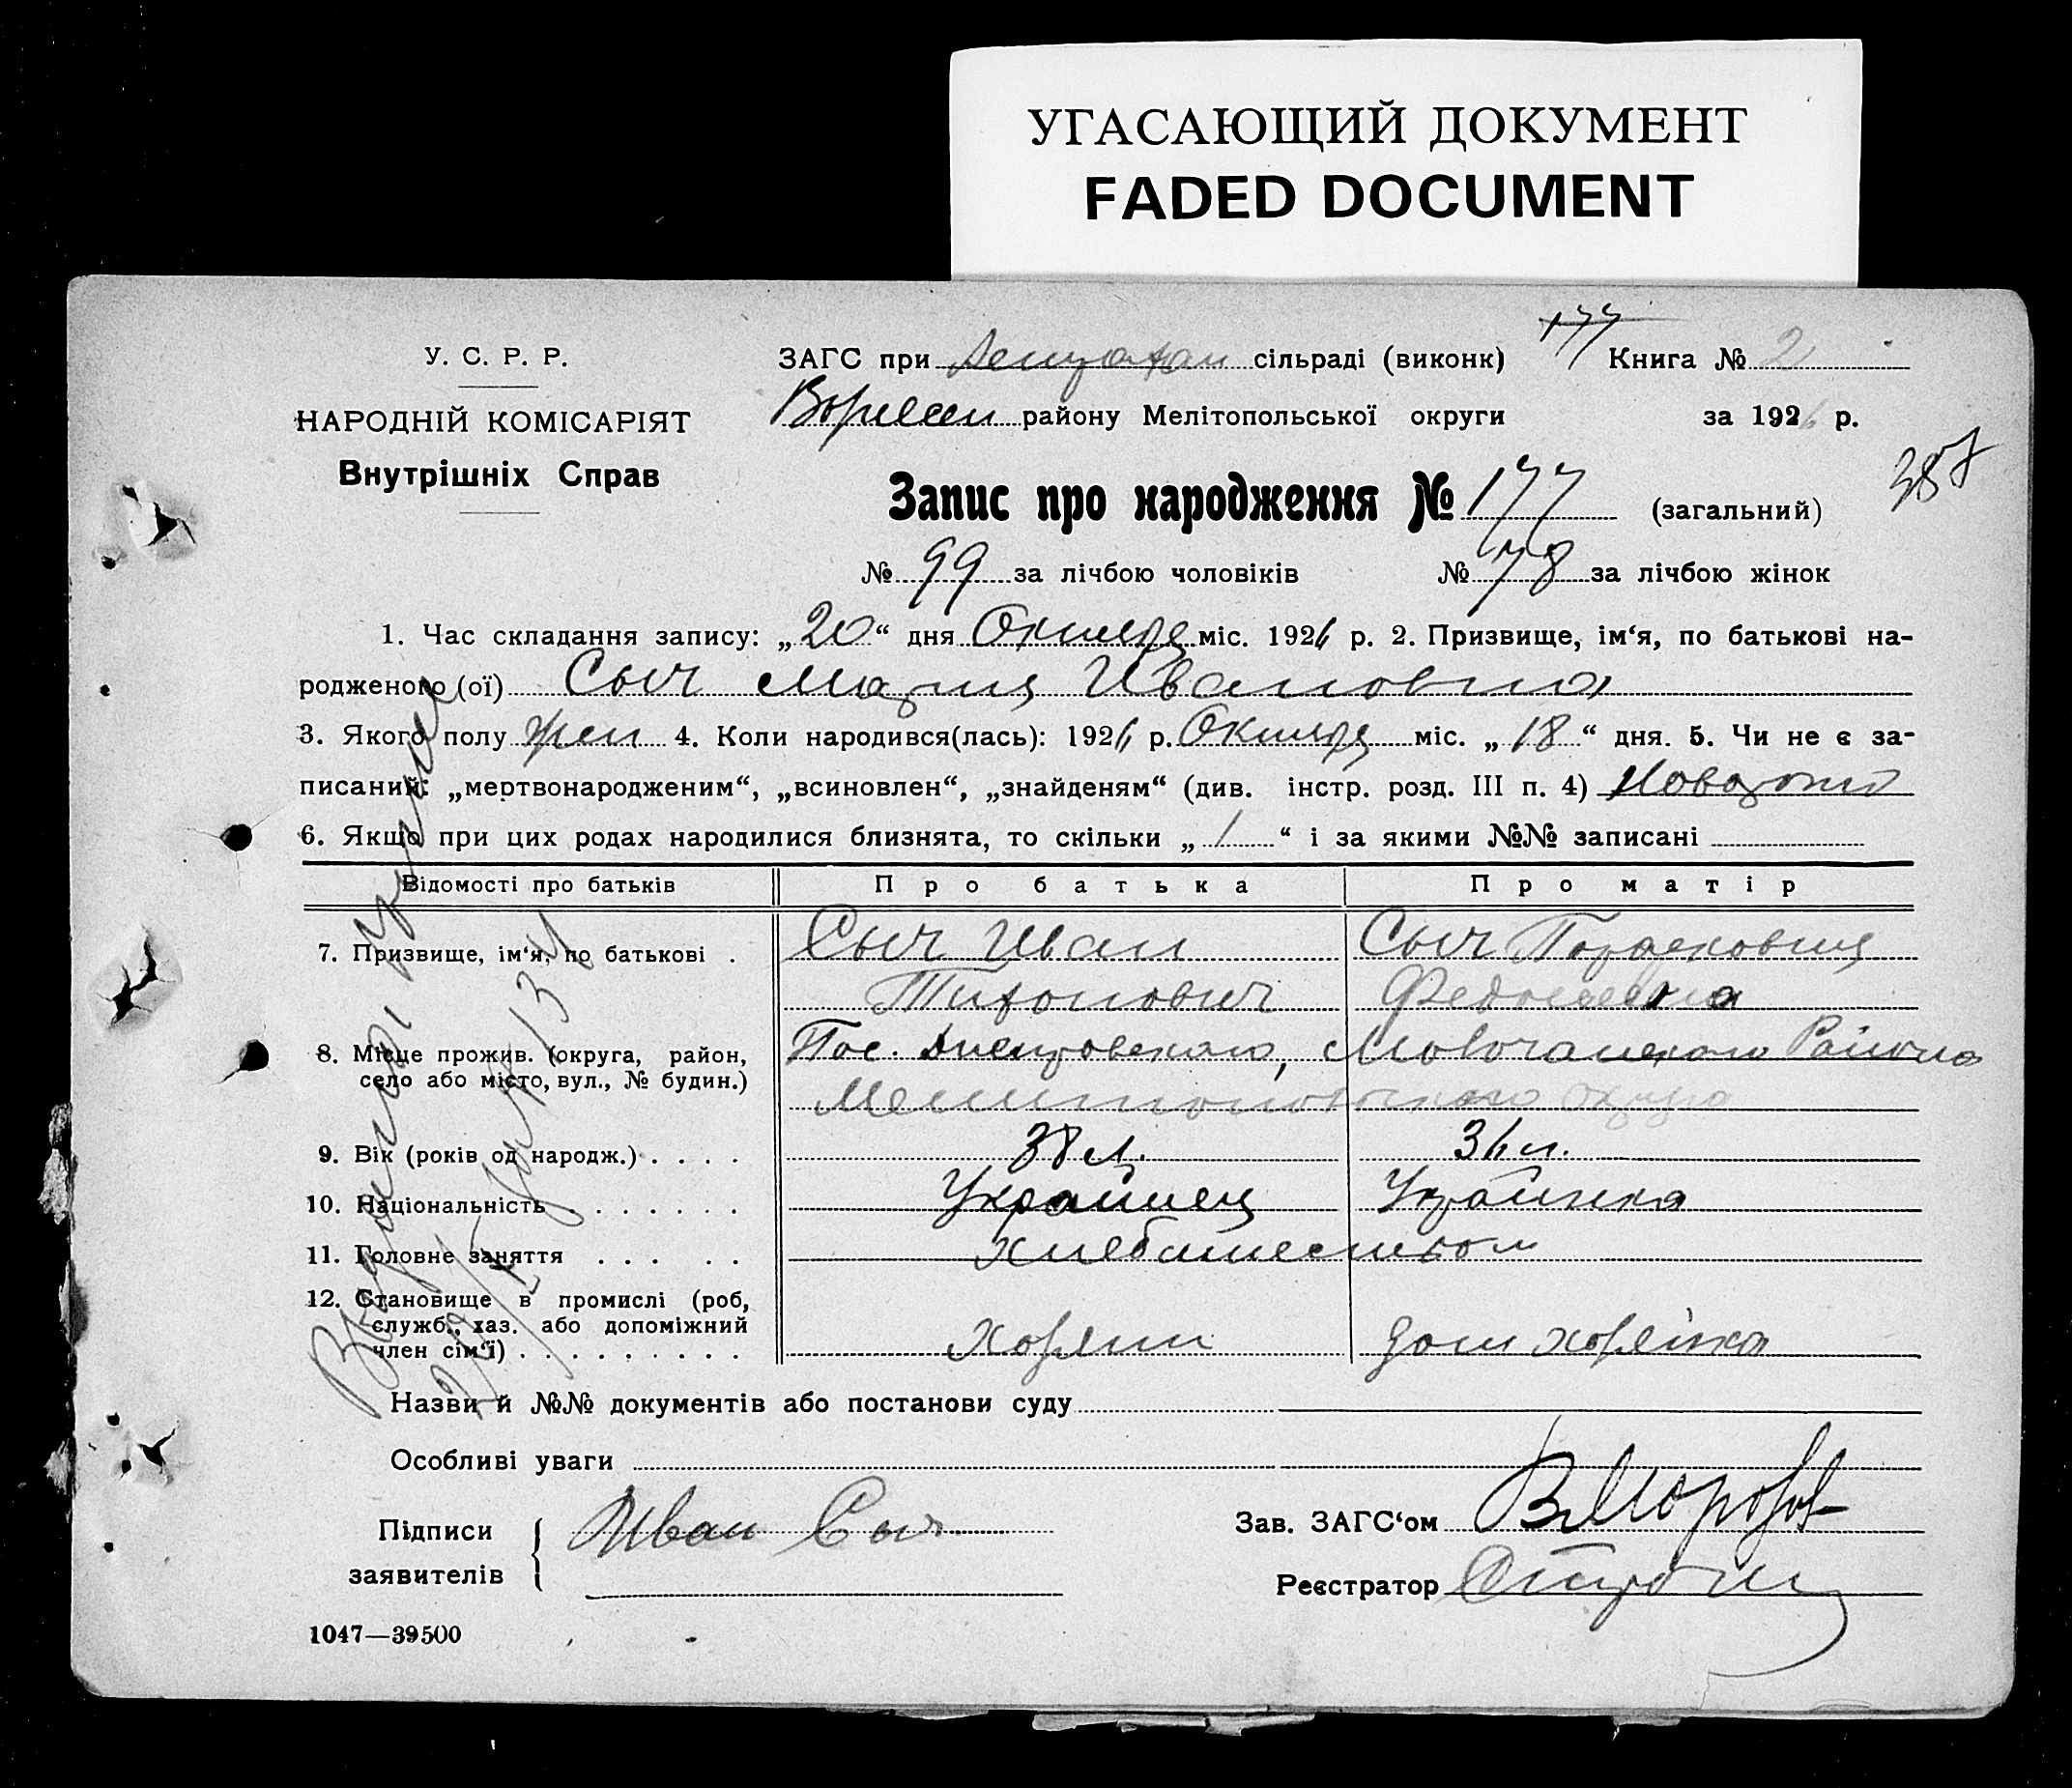 УГАСАЮЩИЙ ДОКУМЕНТ
FADED DOCUMENT
177
У. С. Р. Р.
ЗАГС при сільраді (виконк) Книга № 2
НАРОДНІЙ КОМІСАРІЯТ
району Мелітопольської округи за 1926 р.
Внутрішніх Справ
387
Запис про народження № 177 (загальний)
№ 99 за лічбою чоловіків № 78 за лічбою жінок
1. Час складання запису: „20“ дня Октября міс. 1926 р. 2. Призвище, ім‘я, по батькові на-
родженого (ої) Сыч Мария Ивановна
3. Якого полу жен 4. Коли народився(лась): 1926 р. Октября міс. „18“ дня. 5. Чи не є за-
писаний: „мертвонародженим“, „всиновлен“, „знайденям“ (див. інстр. розд. III п. 4)
6. Якщо при цих родах народилися близнята, то скільки „1“ і за якими №№ записані
Відомості про батьків Про батька Про матір
7. Призвище, ім‘я, по батькові . Сыч Иван Сыч
Тихонович
8. Місце прожив. (округа, район, Пос. Днепровского, Молочанского Района
село або місто, вул., № будин.)
Мелитопольского округа
9. Вік (років од народж.) . . . . 38 л. 36 л.
10. Національність . . . . . . . Украинец Украинка
11. Головне заняття . . . . .
12. Становище в промислі (роб,
служб., хаз. або допоміжний
член сім‘ї) . . . . . . . . . Хозяин дом хозяйка
Назви й №№ документів або постанови суду
Особливі уваги
Підписи Иван Сыч
заявителів
Зав. ЗАГС‘ом ВМорозов
Реєстратор
1047—39500